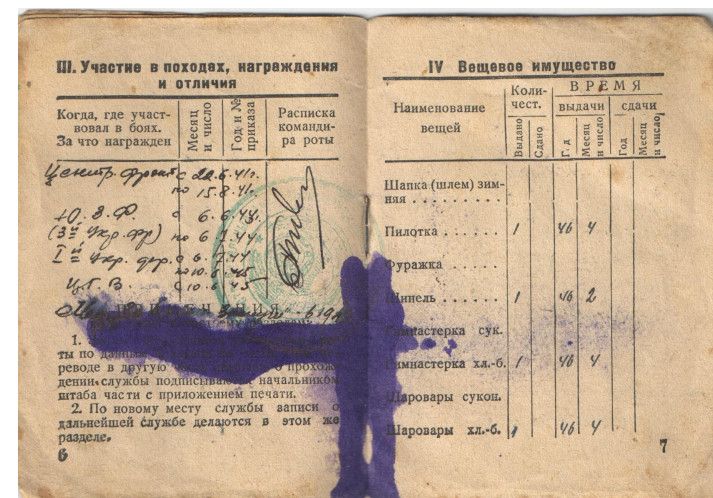 III. Участие в походах, награждения
и отличия
Когда, где участ-
вовал в боях.
За что награжден
Месяц
и число
Год и №
приказа
Расписка
команди-
ра роты
Центр. фронт с 22.6.41г.
по 15.8.41.
Ю.З.Ф. с 6.6.43.
(3й Укр. фр) по 6 7.44
I й Укр. фр. с 6 7.44
по 10.6.45
Ц.Г.В. с 10.6.45
1.
ты по данным
реводе в другую о прохож-
дении службы подписываются начальником
штаба части с приложением печати.
2. По новому месту службы записи о
дальнейшей службе делаются в этом же
разделе.
6
IV Вещевое имущество
Наименование
вещей
Коли-
чест.
Выдано
Сдано
ВРЕМЯ
выдачи
сдачи
Год
Месяц
и число
Год
Месяц
и число
Шапка (шлем) зим-
няя . . . . . . . . .
Пилотка . . . . . . 1 46 4
Фуражка . . . . .
Шинель . . . . . . 1 46 2
Гимнастерка сук.
Гимнастерка хл.-б. 1 46 4
Шаровары сукон.
Шаровары хл.-б. 1 46 4
7